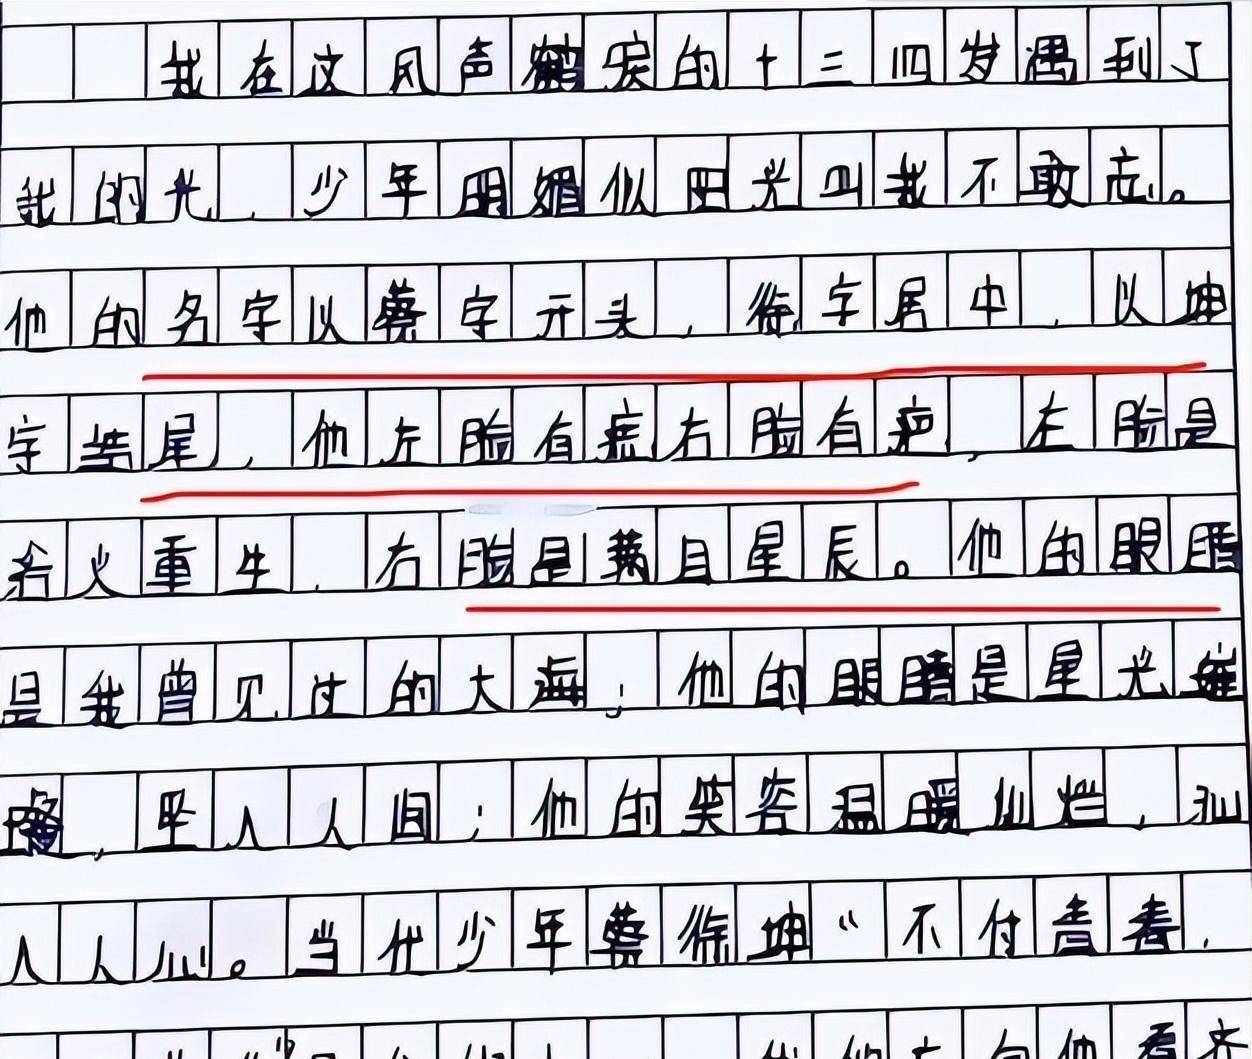 我在这风声鹤唳的十三四岁遇到了
我的光，少年明媚似阳光叫我不敢忘。
他的名字以蔡字开头，徐字居中，以坤
字结尾，他左脸有痣右脸有疤，左脸是
火重生，右脸是满目星辰。他的眼睛
是我曾见过的大海；他的眼睛是星光璀
璨，坠入人间；他的笑容温暖灿烂，
人人心。当代少年蔡徐坤“不付青春，